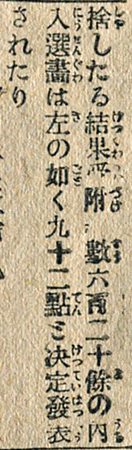 捨したる結果附數六百二十餘の内
入選畫は左の如く九十二點と决定發表
されたり